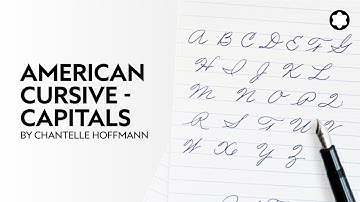 AMERICAN
CURSIVE -
CAPITALS
BY CHANTELLE HOFFMANN
A B C D E F G
H I J K L
M N O P Q
R S T U V
W X Y Z